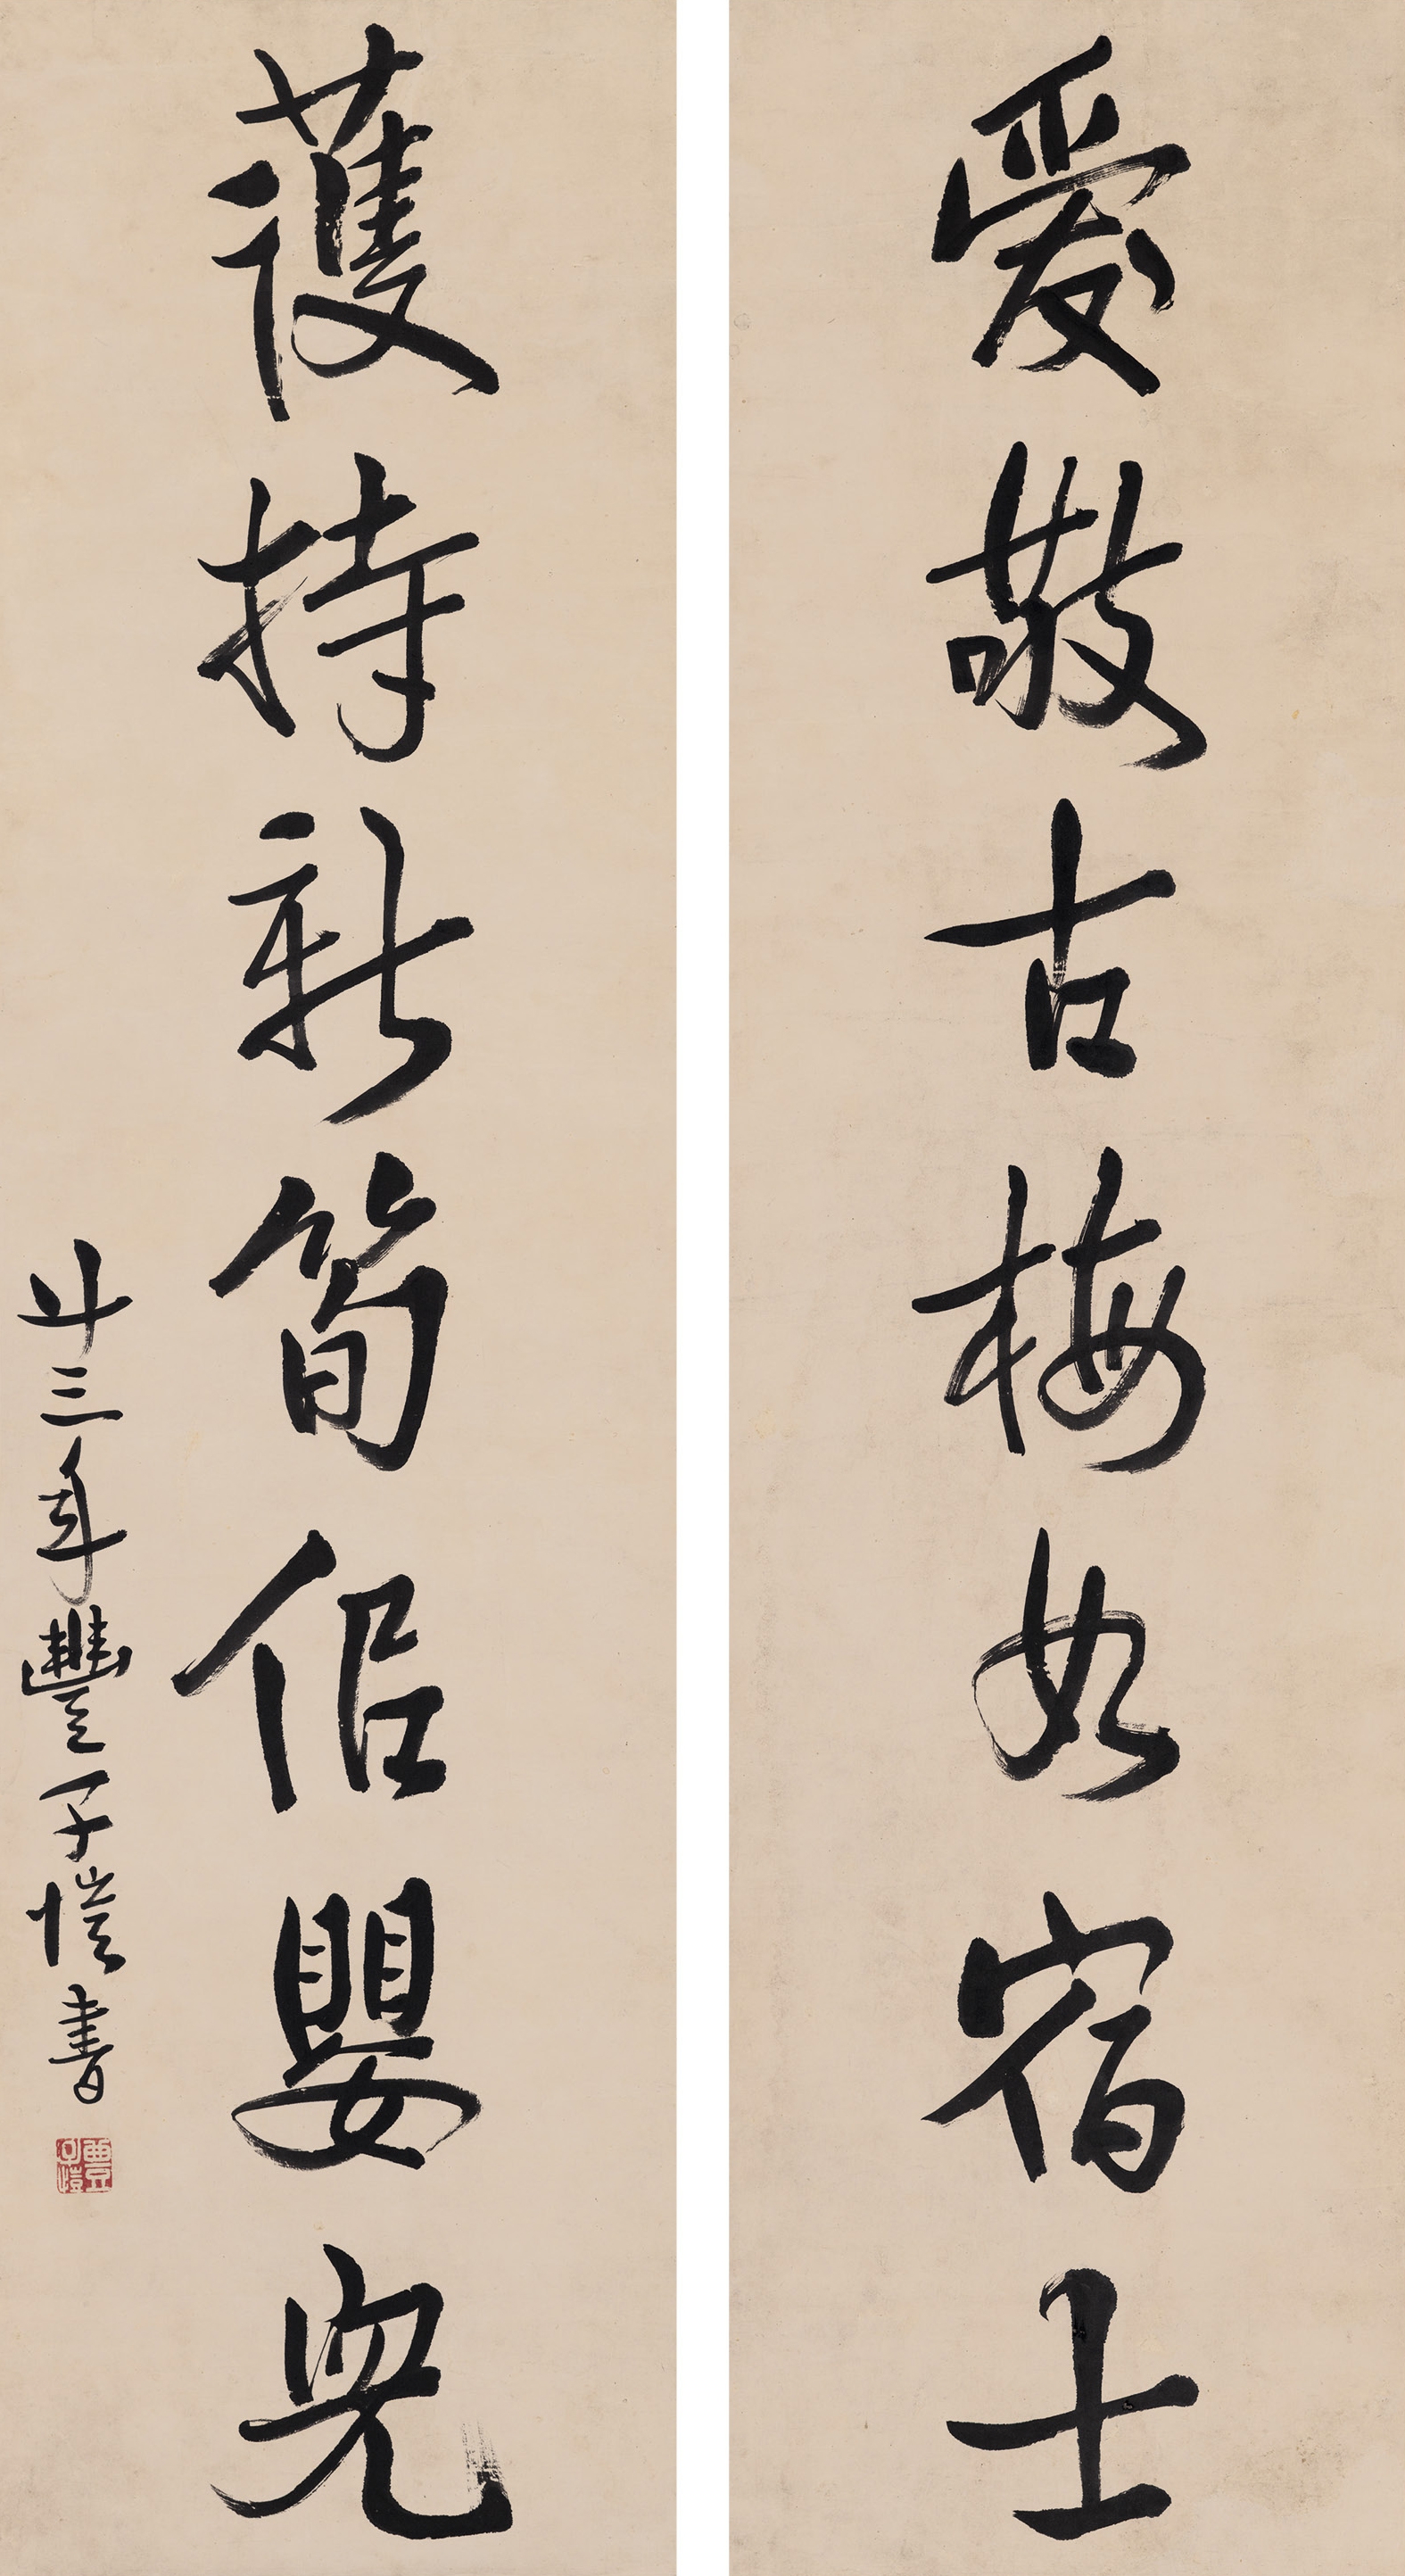 愛敬古梅如宿士
護持新筍侣嬰兒
廿三年豐子愷書
豐子愷